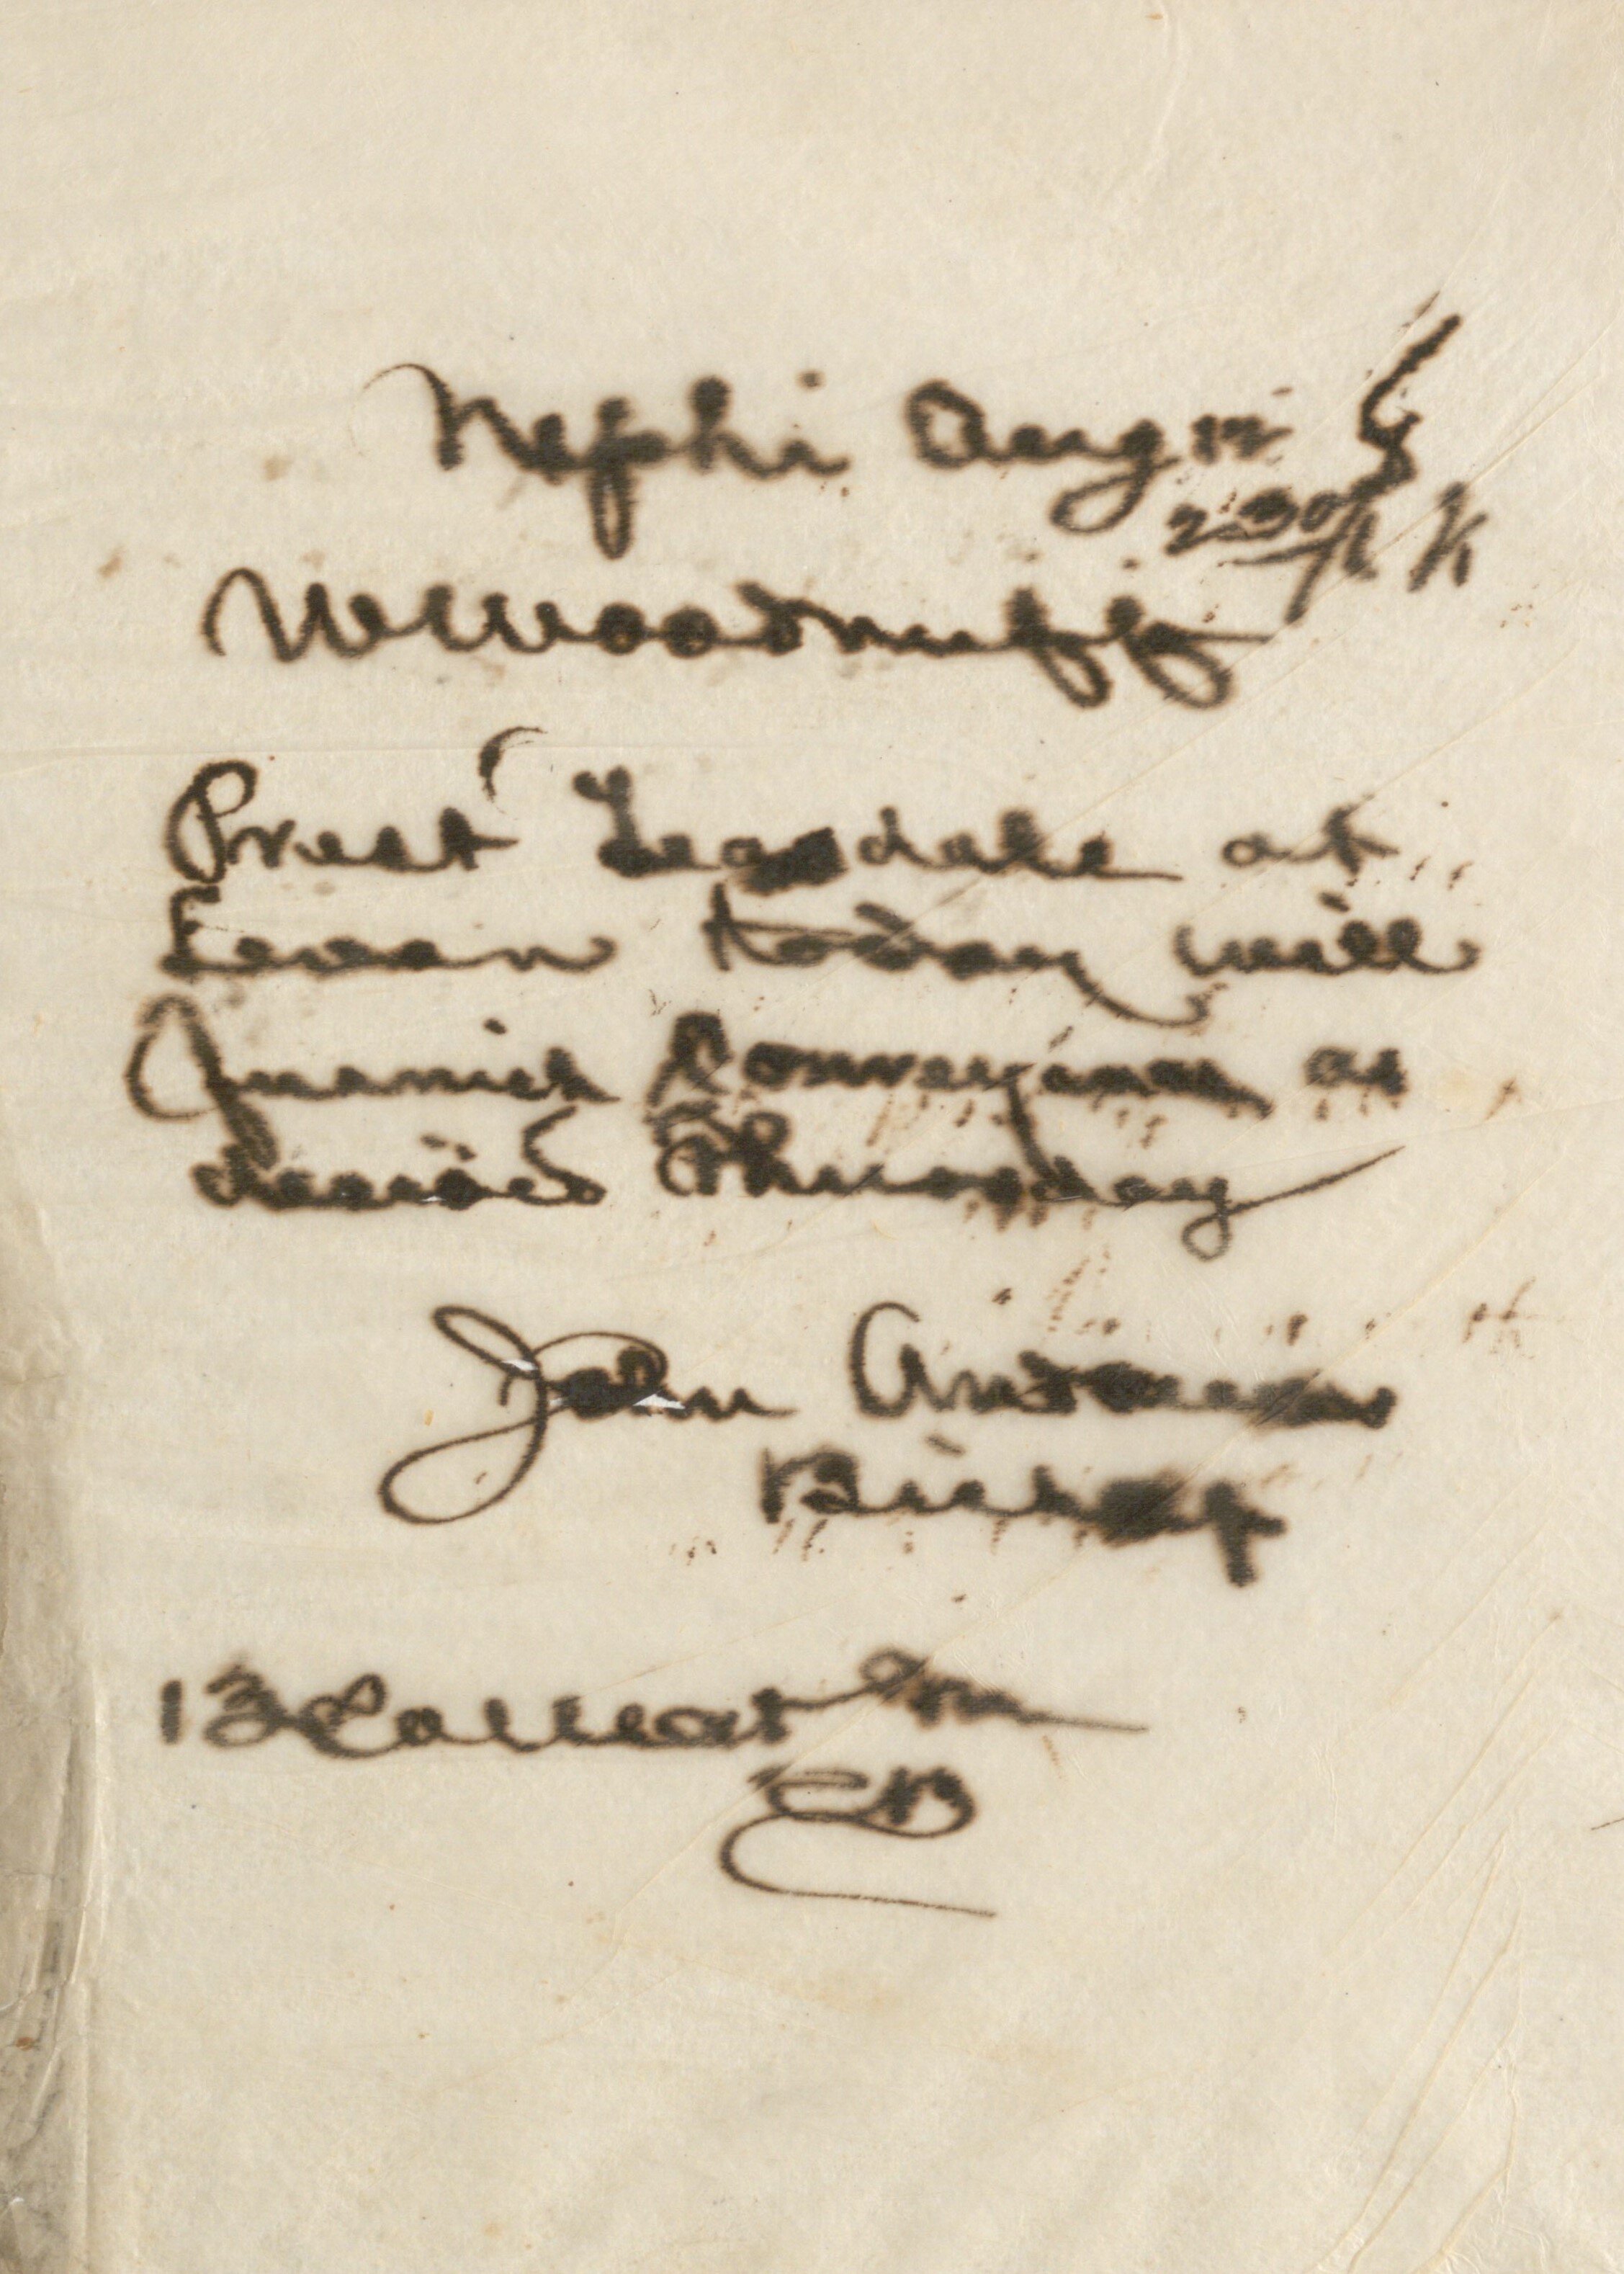 Nephi Aug 12
2 30
W Woodruff
Prest Teasdale at
Levan today will
Furnish Conveyance as
desired Thursday
John Andrews
Bishop
13 Collect